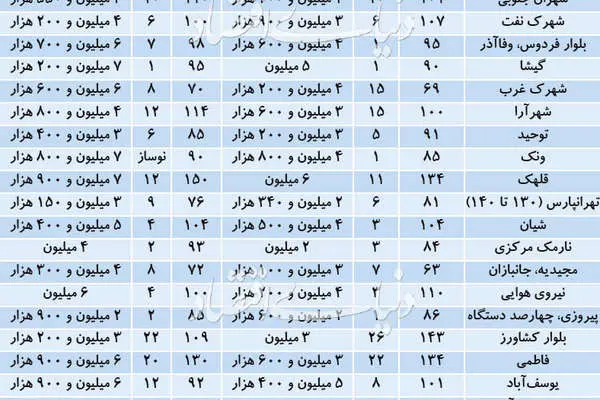 شهرک نفت ۱۰۷ ۶ ۳ میلیون و ۹۰۰ هزار ۱۰۰ ۶ ۴ میلیون و ۲۰۰ هزار
بلوار فردوس، وفاآذر ۹۵ ۴ میلیون و ۶۰۰ هزار ۹۸ ۷ ۶ میلیون و ۷۰۰ هزار
گیشا ۹۰ ۱ ۵ میلیون ۹۵ ۱ ۷ میلیون و ۲۰۰ هزار
شهرک غرب ۶۹ ۱۵ ۴ میلیون و ۲۰۰ هزار ۷۰ ۸ ۶ میلیون و ۶۰۰ هزار
شهرآرا ۱۰۰ ۱۵ ۳ میلیون و ۶۰۰ هزار ۱۱۴ ۱۲ ۴ میلیون و ۸۰۰ هزار
توحید ۹۱ ۵ ۳ میلیون و ۲۰۰ هزار ۸۵ ۶ ۳ میلیون و ۴۰۰ هزار
ونک ۸۵ ۱ ۴ میلیون و ۸۰۰ هزار ۹۰ نوساز ۷ میلیون و ۸۰۰ هزار
قلهک ۱۳۴ ۱۱ ۶ میلیون ۱۵۰ ۱۲ ۷ میلیون و ۹۰۰ هزار
تهرانپارس (۱۳۰ تا ۱۴۰) ۸۱ ۶ ۲ میلیون و ۳۴۰ هزار ۷۶ ۹ ۳ میلیون و ۱۵۰ هزار
شیان ۱۰۴ ۳ ۴ میلیون و ۵۰۰ هزار ۱۰۴ ۴ ۵ میلیون و ۴۰۰ هزار
نارمک مرکزی ۸۴ ۳ ۲ میلیون ۹۳ ۲ ۴ میلیون
مجیدیه، جانبازان ۶۳ ۷ ۳ میلیون و ۱۰۰ هزار ۷۲ ۸ ۴ میلیون و ۳۰۰ هزار
نیروی هوایی ۱۱۰ ۲ ۴ میلیون و هزار ۱۰۰ ۴ ۶ میلیون
پیروزی، چهارصد دستگاه ۸۶ میلیون و ۶۰۰ هزار ۸۵ ۲ ۲ میلیون و ۹۰۰ هزار
بلوار کشاورز ۱۴۳ ۲۶ ۳ میلیون ۱۰۹ ۲۲ ۳ میلیون و ۲۰۰ هزار
فاطمی ۱۳۴ ۲۲ ۳ میلیون و ۶۰۰ هزار ۱۳۰ ۲۰ ۶ میلیون و ۹۰۰ هزار
یوسف‌آباد ۱۰۱ ۸ ۵ میلیون و ۴۰۰ هزار ۹۲ ۱۲ ۶ میلیون و ۹۰۰ هزار
دنیای اقتصاد
دنیای اقتصاد